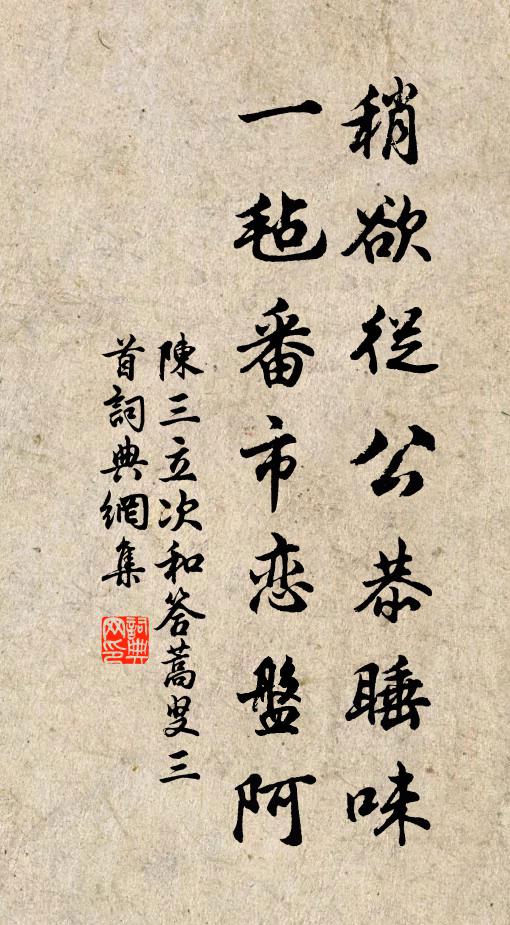 稍欲從公恭睡味
一毡番市恋盤阿
陳三立次和答蒿叟三
首詞典網集
詞典
网印